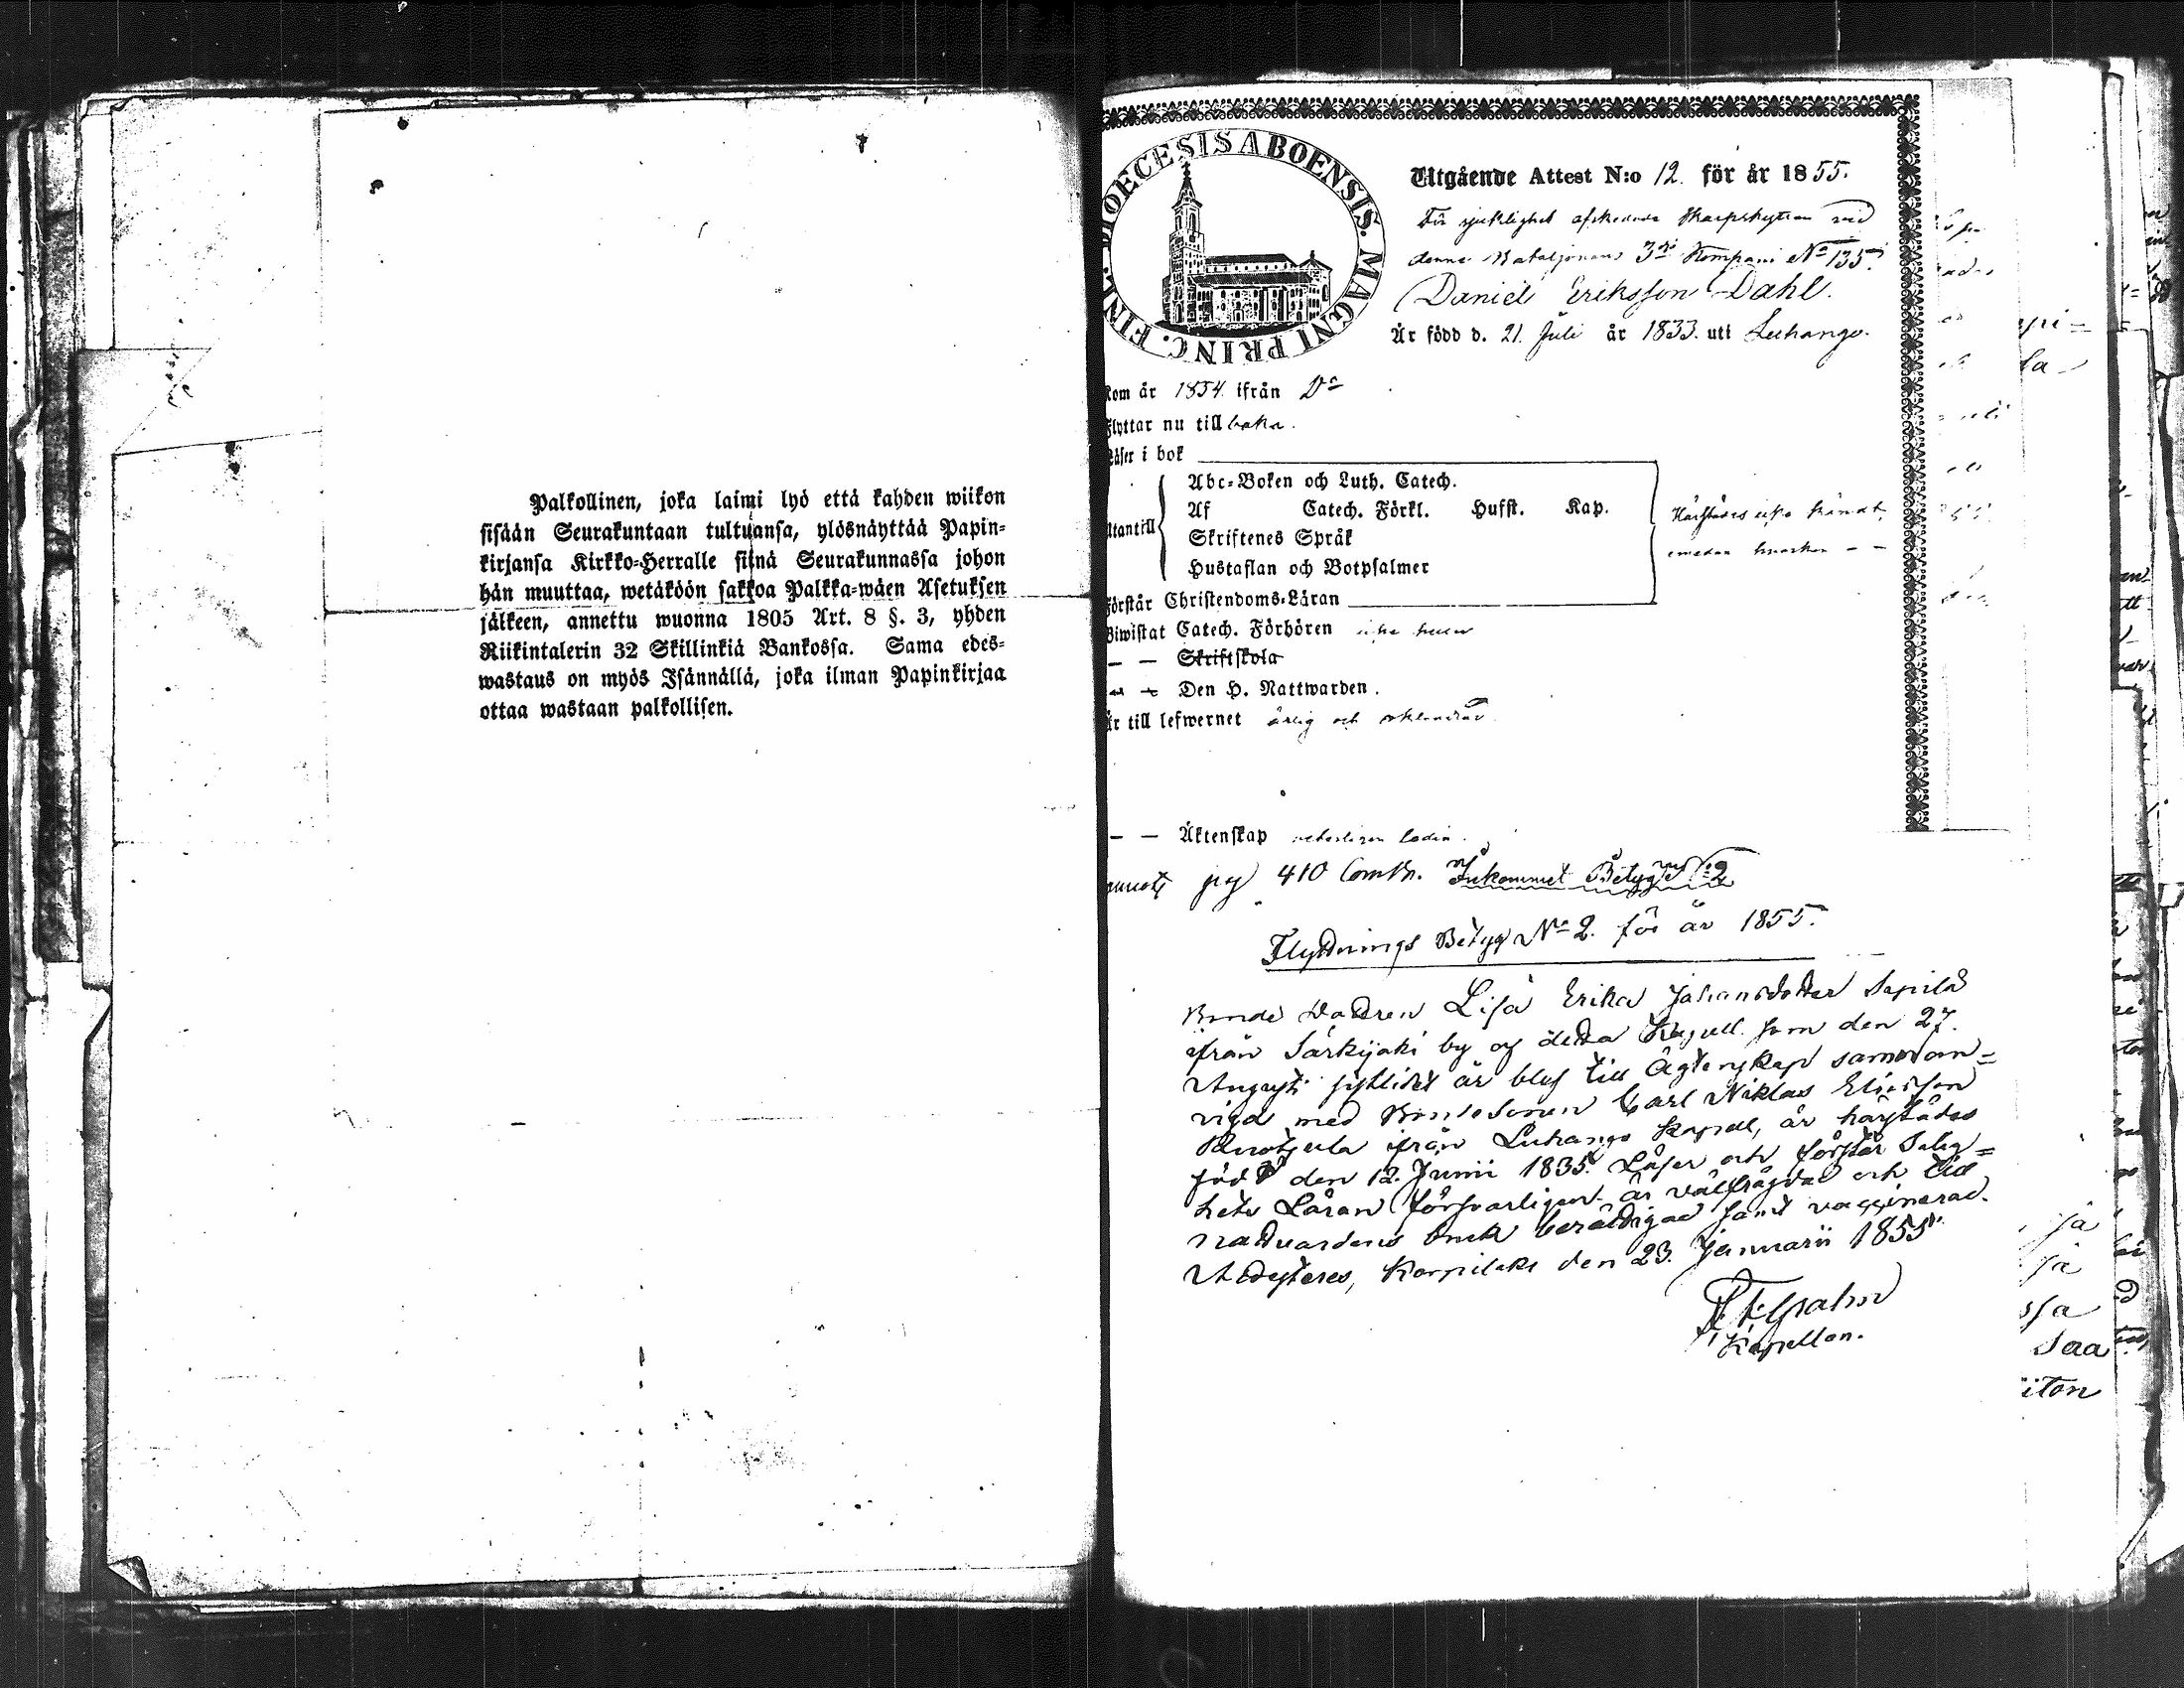 Palkollinen, joka laimi lyö että kahden wiikon
sisään Seurakuntaan tultuansa, ylösnäyttää Papin-
kirjansa Kirkko-Herralle siinä Seurakunnassa johon
hän muuttaa, wetäköön sakkoa Palkka-wäen Asetuksen
jälkeen, annettu wuonna 1805 Art. 8 §. 3, yhden
Riikintalerin 32 Skillinkiä Bankossa. Sama edes-
wastaus on myös Isännällä, joka ilman Papinkirjaa
ottaa wastaan palkollisen.
DIOECESIS ABOENSIS. MAGNI PRINC. FINL.
Utgående Attest N:o 12. för år 1855.
För sjuklighet afskedade Skarpskytten vid
denna Bataljonens 3dje Kompani No 135.
Daniel Eriksson Dahl.
Är född d. 21. Juli år 1833. uti Luhango.
Kom år 1854. ifrån Do
Flyttar nu till baka.
Läser i bok
Abc-Boken och Luth. Catech.
Utantill Af Catech. Förkl. Husst. Kap.
Skriftenes Språk
Hustaflan och Botpsalmer
Härstädes icke kändt,
emedan
Förstår Christendoms-Läran
Biwistat Catech. Förhören icke
— — Skriftskola
— — Den H. Nattwarden.
Är till lefwernet ärlig och
— — Äktenskap ledig.
pag 410 Inkommet Betyg No 2
Flyttnings Betyg No 2. för år 1855.
Bonde Dottren Lisa Erika Johansdotter Sepilä
ifrån Särkijoki by af detta Kapell som den 27.
Augusti sistlidet år blef till Ägtenskap samman=
vigd med Bondesonen Carl Niklas Eliasson
ifrån Luhango Kapell, är härstädes
född den 12. Junii 1835. Läser och förstår Salig=
hets Läran försvarligen. är välfrägdad och till
nattvardens bruk berättigad samt vaccinerad.
Attesteres, Korpilaks den 23. Januarii 1855
Kapellan.